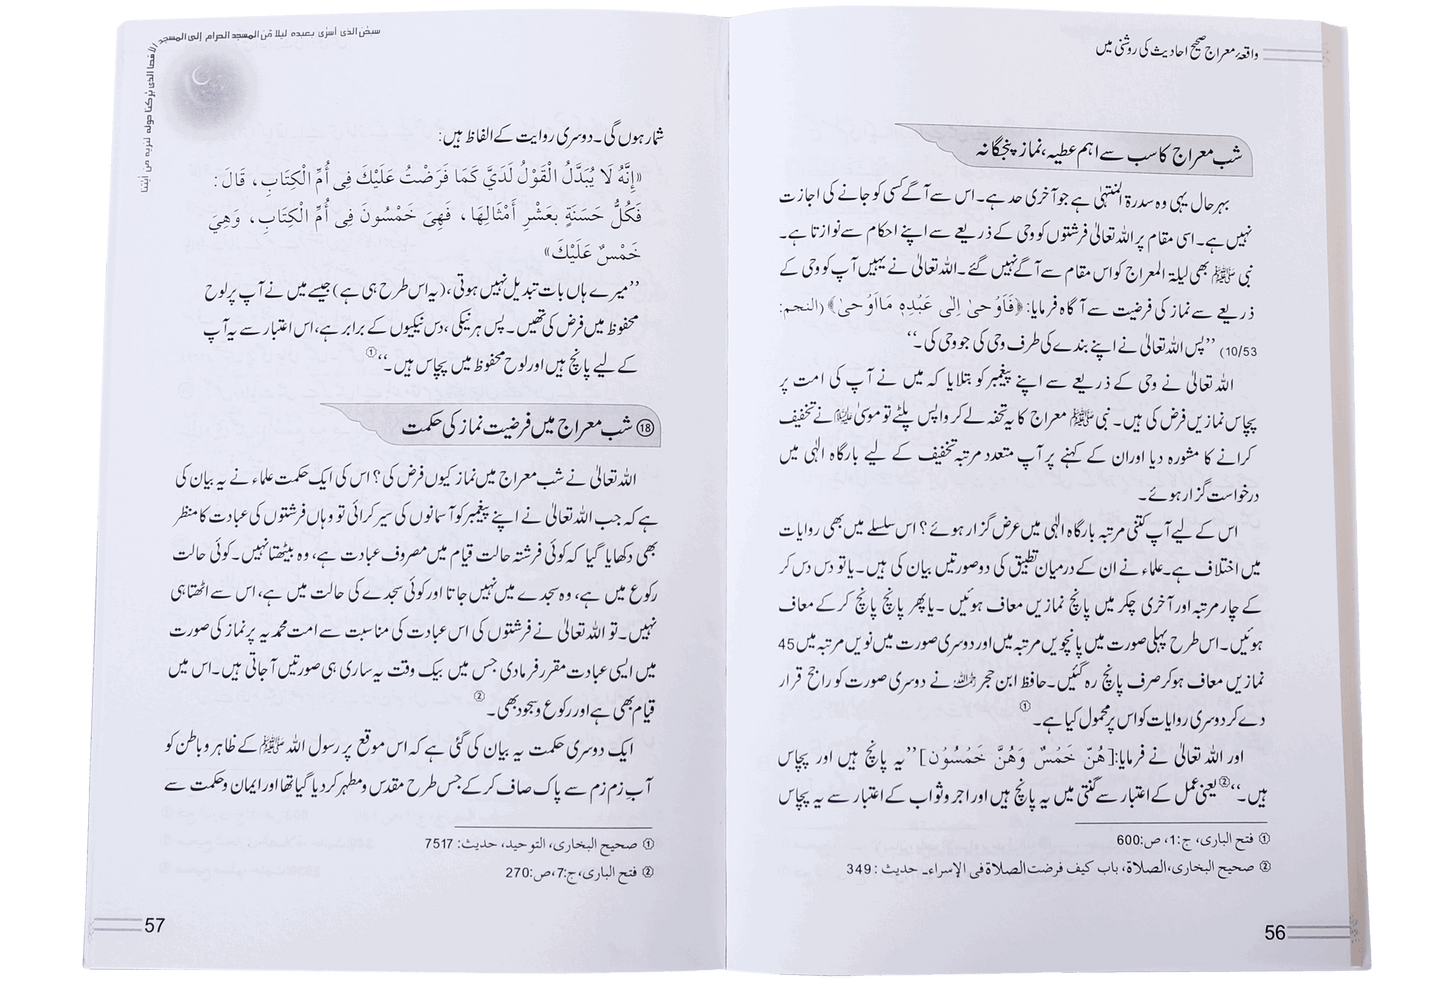 واقعۂ معراج صحیح احادیث کی روشنی میں
شب معراج کا سب سے اہم عطیہ، نماز پنجگانہ
بہر حال یہی وہ سدرۃ المنتہیٰ ہے جو آخری حد ہے۔ اس سے آگے کسی کو جانے کی اجازت
نہیں ہے۔ اسی مقام پر اللہ تعالیٰ فرشتوں کو وحی کے ذریعے سے اپنے احکام سے نوازتا ہے۔
نبی ﷺ بھی لیلۃ المعراج کو اس مقام سے آگے نہیں گئے۔ اللہ تعالیٰ نے یہیں آپ کو وحی کے
ذریعے سے نماز کی فرضیت سے آگاہ فرمایا: ﴿فَاَوْحٰیٓ اِلٰی عَبْدِہٖ مَا اَوْحٰی﴾ (النجم:
10/53) ’’پس اللہ تعالیٰ نے اپنے بندے کی طرف وحی کی جو وحی کی۔‘‘
اللہ تعالیٰ نے وحی کے ذریعے سے اپنے پیغمبر کو بتلایا کہ میں نے آپ کی امت پر
پچاس نمازیں فرض کی ہیں۔ نبی ﷺ معراج کا یہ تحفہ لے کر واپس پلٹے تو موسیٰ علیہ السلام نے تخفیف
کرانے کا مشورہ دیا اور ان کے کہنے پر آپ متعدد مرتبہ تخفیف کے لیے بارگاہ الٰہی میں
درخواست گزار ہوئے۔
اس کے لیے آپ کتنی مرتبہ بارگاہ الٰہی میں عرض گزار ہوئے؟ اس سلسلے میں بھی روایات
میں اختلاف ہے۔ علماء نے ان کے درمیان تطبیق کی دو صورتیں بیان کی ہیں۔ یا تو دس دس کر
کے چار مرتبہ اور آخری چکر میں پانچ نمازیں معاف ہوئیں۔ یا پھر پانچ پانچ کر کے معاف
ہوئیں۔ اس طرح پہلی صورت میں پانچویں مرتبہ میں اور دوسری صورت میں نویں مرتبہ میں 45
نمازیں معاف ہو کر صرف پانچ رہ گئیں۔ حافظ ابن حجر رحمہ اللہ نے دوسری صورت کو راجح قرار
دے کر دوسری روایات کو اس پر محمول کیا ہے۔ ①
اور اللہ تعالیٰ نے فرمایا: [هُنَّ خَمْسٌ وَهُنَّ خَمْسُوْنَ] ’’یہ پانچ ہیں اور پچاس
ہیں۔‘‘ ② یعنی عمل کے اعتبار سے گنتی میں یہ پانچ ہیں اور اجر و ثواب کے اعتبار سے یہ پچاس
① فتح الباری، ج:1، ص:600
② صحیح البخاری، الصلاة، باب کیف فرضت الصلاة فی الإسراء۔ حدیث : 349
56
سبحٰن الذی أسرٰی بعبده لیلا مّن المسجد الحرام إلی المسجد الأقصا الذی برکنا حوله لنریه من اٰیٰتنا
شمار ہوں گی۔ دوسری روایت کے الفاظ ہیں:
«إِنَّهُ لَا يُبَدَّلُ الْقَوْلُ لَدَيَّ كَمَا فَرَضْتُ عَلَيْكَ فِي أُمِّ الْكِتَابِ، قَالَ:
فَكُلُّ حَسَنَةٍ بِعَشْرِ أَمْثَالِهَا، فَهِيَ خَمْسُونَ فِي أُمِّ الْكِتَابِ، وَهِيَ
خَمْسٌ عَلَيْكَ»
’’میرے ہاں بات تبدیل نہیں ہوتی، (یہ اس طرح ہی ہے) جیسے میں نے آپ پر لوح
محفوظ میں فرض کی تھیں۔ پس ہر نیکی، دس نیکیوں کے برابر ہے، اس اعتبار سے یہ آپ
کے لیے پانچ ہیں اور لوح محفوظ میں پچاس ہیں۔‘‘ ①
⑱ شب معراج میں فرضیت نماز کی حکمت
اللہ تعالیٰ نے شب معراج میں نماز کیوں فرض کی؟ اس کی ایک حکمت علماء نے یہ بیان کی
ہے کہ جب اللہ تعالیٰ نے اپنے پیغمبر کو آسمانوں کی سیر کرائی تو وہاں فرشتوں کی عبادت کا منظر
بھی دکھایا گیا کہ کوئی فرشتہ حالت قیام میں مصروف عبادت ہے، وہ بیٹھتا نہیں۔ کوئی حالت
رکوع میں ہے، وہ سجدے میں نہیں جاتا اور کوئی سجدے کی حالت میں ہے، اس سے اٹھتا ہی
نہیں۔ تو اللہ تعالیٰ نے فرشتوں کی اس عبادت کی مناسبت سے امت محمدیہ پر نماز کی صورت
میں ایسی عبادت مقرر فرما دی جس میں بیک وقت یہ ساری ہی صورتیں آجاتی ہیں۔ اس میں
قیام بھی ہے اور رکوع و سجود بھی۔ ②
ایک دوسری حکمت یہ بیان کی گئی ہے کہ اس موقع پر رسول اللہ ﷺ کے ظاہر و باطن کو
آبِ زم زم سے پاک صاف کر کے جس طرح مقدس و مطہر کر دیا گیا تھا اور ایمان و حکمت سے
① صحیح البخاری، التوحید، حدیث: 7517
② فتح الباری، ج:7، ص:270
57